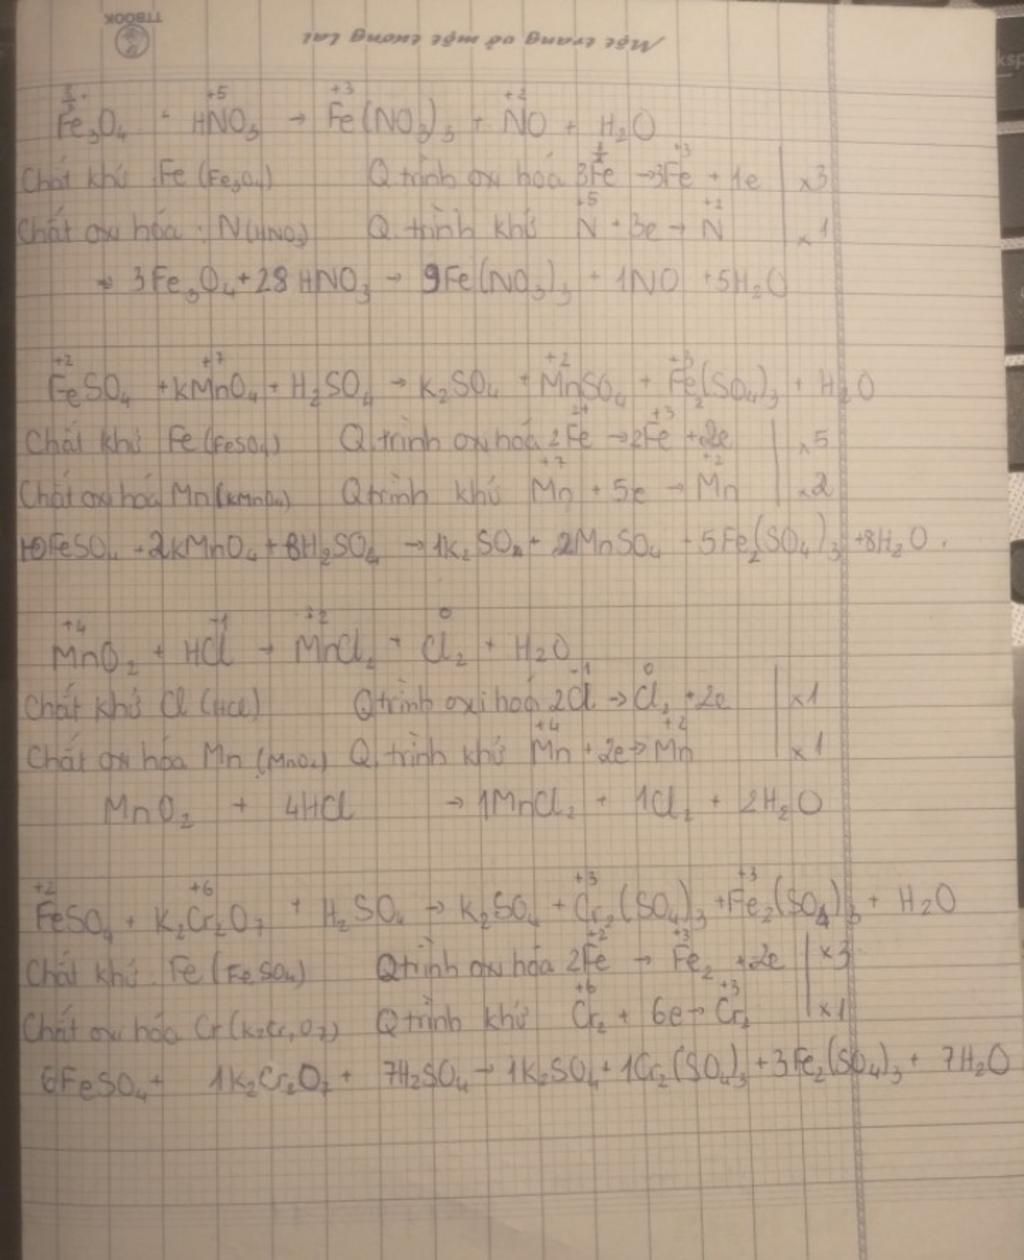 TTBOOK
Một trang vở một tương lai
Fe₃O₄ + HNO₃ → Fe(NO₃)₃ + NO + H₂O
+5 +3 +2
Chất khử Fe (Fe₃O₄) Q trình oxi hoá 3Fe → 3Fe + 1e | x3
Chất oxi hóa : N(HNO₃) Q. trình khử N + 3e → N | x 1
+5 +2
→ 3Fe₃O₄ + 28 HNO₃ → 9Fe(NO₃)₃ + 1NO + 5H₂O
+2 +7 +2 +3
FeSO₄ + KMnO₄ + H₂SO₄ → K₂SO₄ + MnSO₄ + Fe₂(SO₄)₃ + H₂O
Chất khử Fe (FeSO₄) Q trình oxi hoá 2Fe → 2Fe + 2e | x 5
+7 +2
Chất oxi hoá Mn (KMnO₄) Q trình khử Mn + 5e → Mn | x2
10FeSO₄ + 2KMnO₄ + 8H₂SO₄ → 1K₂SO₄ + 2MnSO₄ + 5Fe₂(SO₄)₃ + 8H₂O.
+4 -1 +2 0
MnO₂ + HCl → MnCl₂ + Cl₂ + H₂O
-1 0
Chất khử Cl (HCl) Q trình oxi hoá 2Cl → Cl₂ + 2e | x 1
+4 +2
Chất oxi hóa Mn (MnO₂) Q. trình khử Mn + 2e → Mn | x 1
MnO₂ + 4HCl → 1MnCl₂ + 1Cl₂ + 2H₂O
+2 +6 +3 +3
FeSO₄ + K₂Cr₂O₇ + H₂SO₄ → K₂SO₄ + Cr₂(SO₄)₃ + Fe₂(SO₄)₃ + H₂O
+2 +3
Chất khử Fe (FeSO₄) Q trình oxi hóa 2Fe → Fe₂ + 2e | x3
+6 +3
Chất oxi hóa Cr (K₂Cr₂O₇) Q trình khử Cr₂ + 6e → Cr₂ | x1
6FeSO₄ + 1K₂Cr₂O₇ + 7H₂SO₄ → 1K₂SO₄ + 1Cr₂(SO₄)₃ + 3Fe₂(SO₄)₃ + 7H₂O